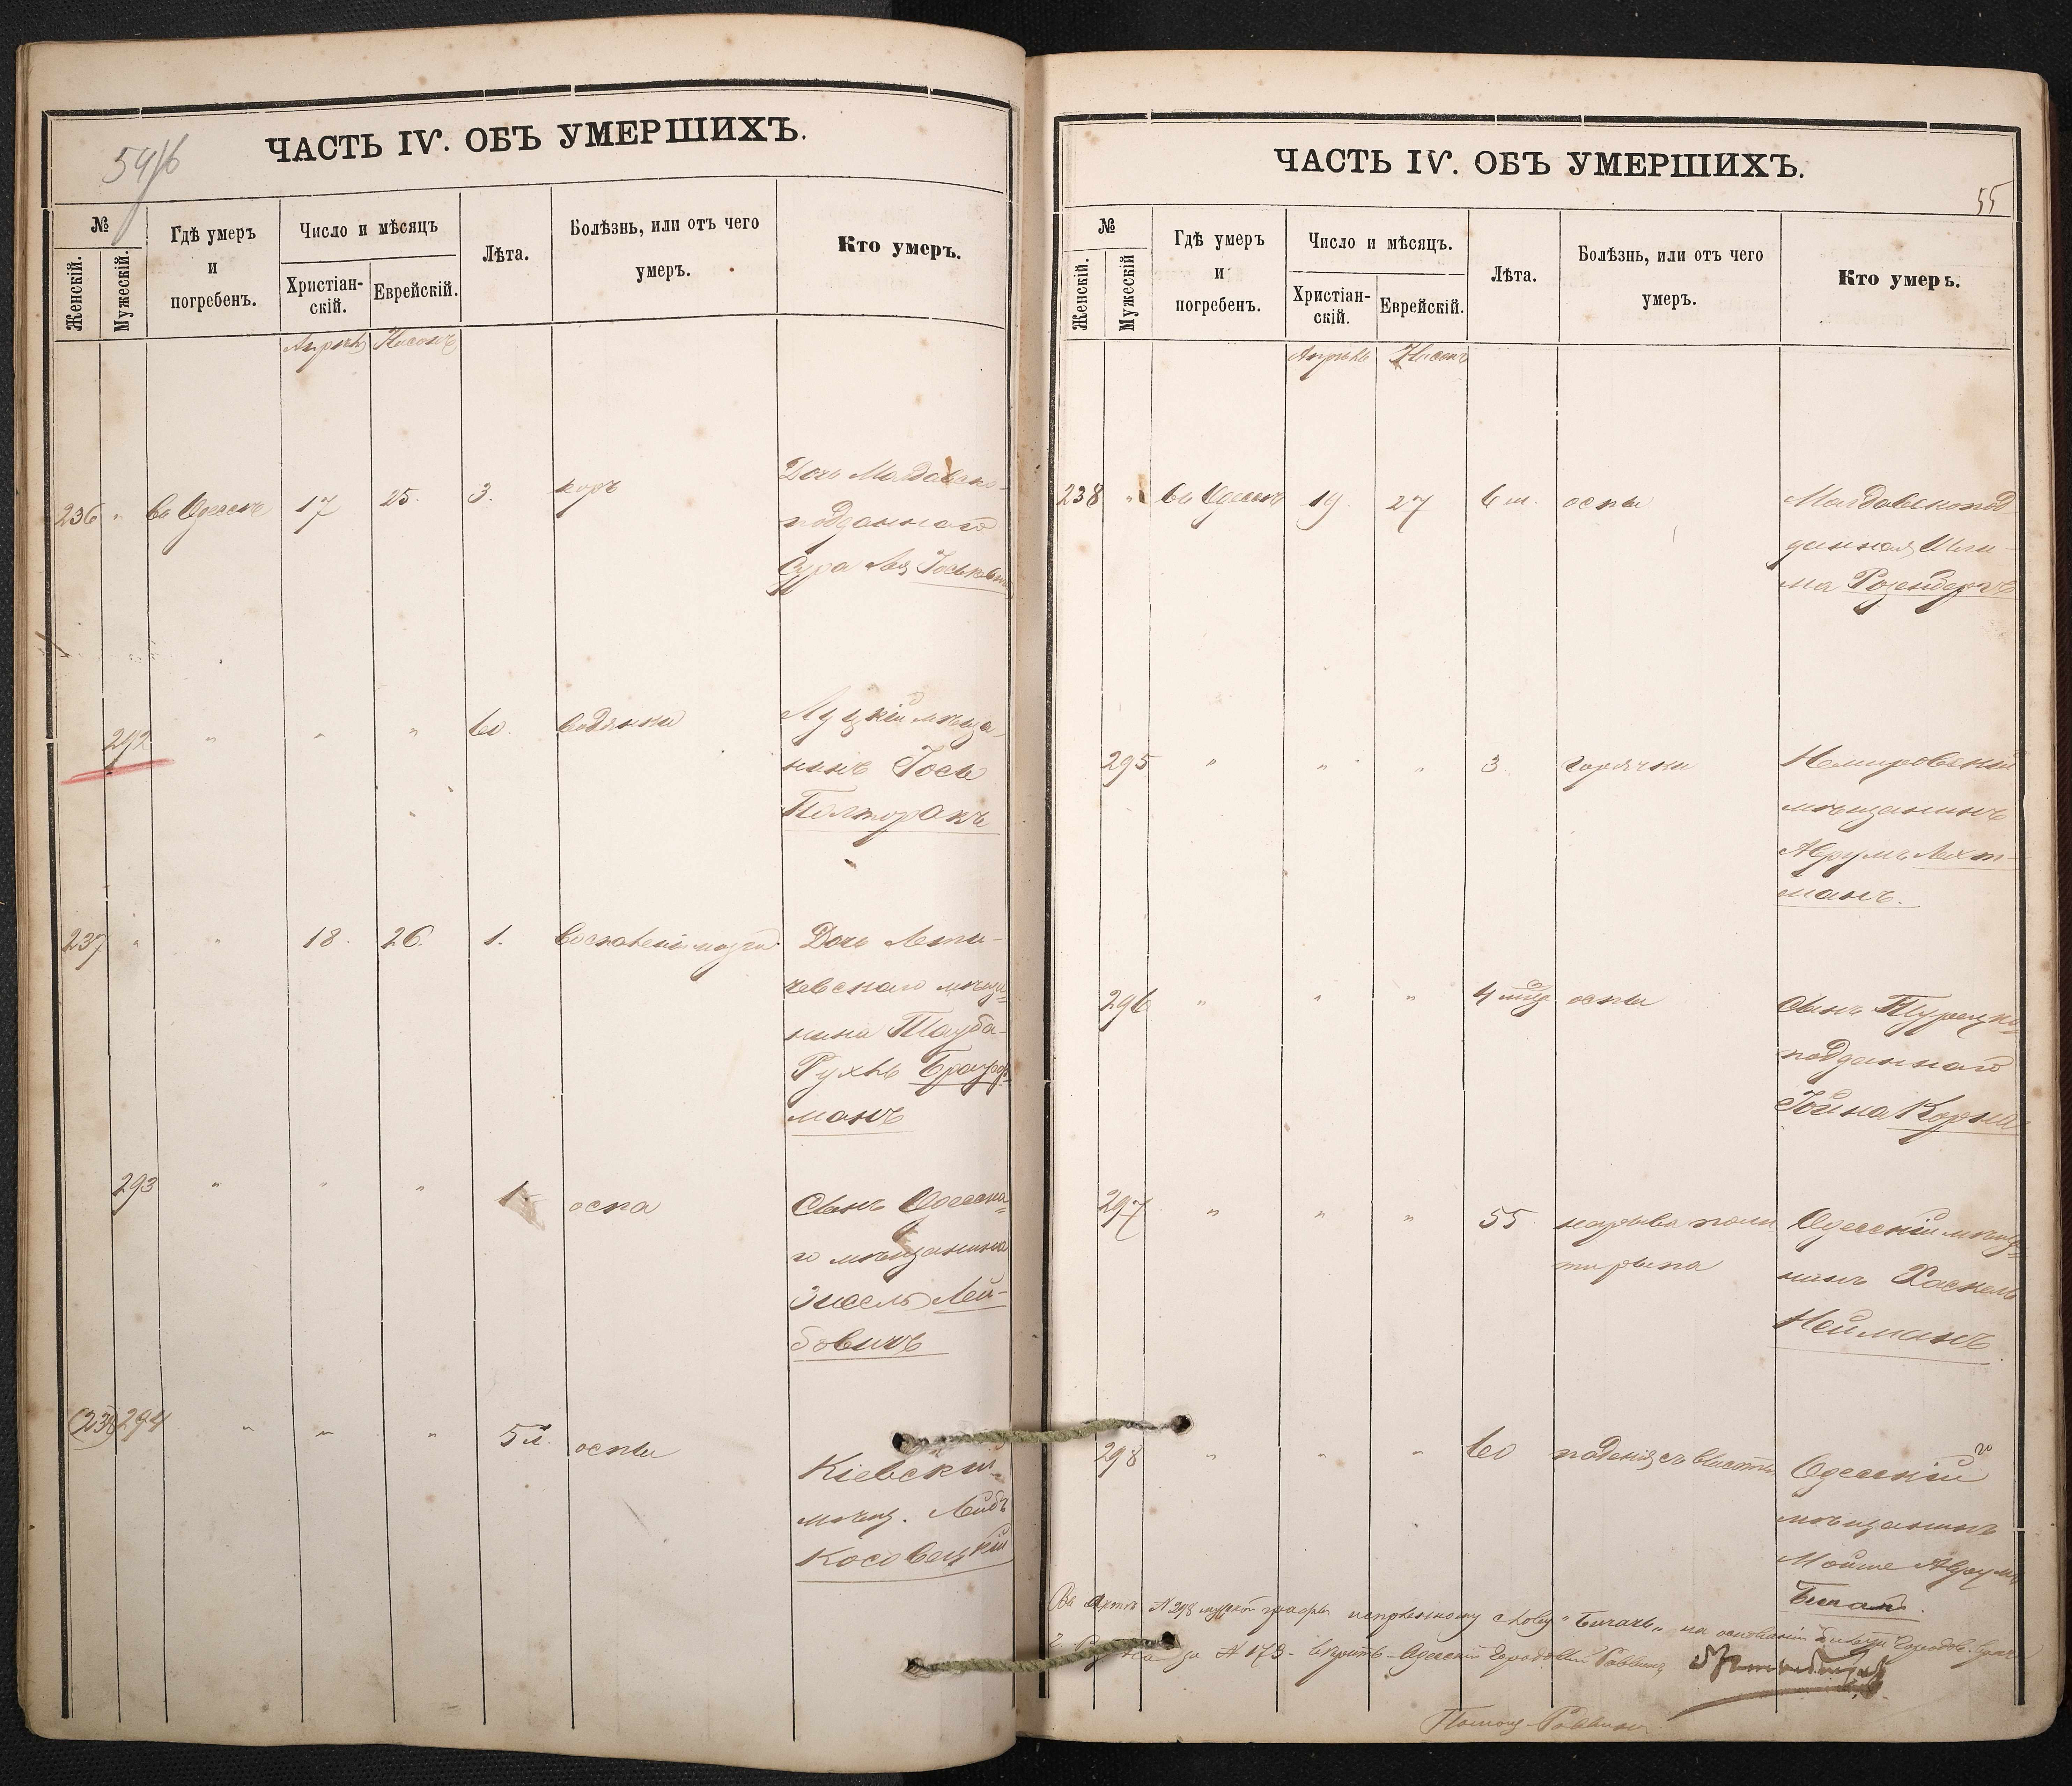 ЧАСТЬ IV. ОБЪ УМЕРШИХЪ.
№
Женскій.
Мужескій.
Гдѣ умеръ
и
погребенъ.
Число и мѣсяцъ
Христіан-
скій.
Еврейскій.
Лѣта.
Болѣзнь, или отъ чего
умеръ.
Кто умеръ.
Апрѣль Нисонъ
236 " въ Одессѣ 17 25. 3. корь
Дочь Молдавско-
подданнаго
Сура Лея Іоськовичъ
292 " " " 60. водянки
Луцкій мѣща-
нинъ Іось
Полторакъ
237 " " 18. 26. 1. Воспаленія мозга
Дочь Лети-
чевскаго мѣща-
нина Тауба-
Рухль Брауф-
манъ
293 " " " 1. оспа
Сынъ Одесска-
го мѣщанина
Зисель Лей-
бовичъ
(238) 294 " " " 5 л. оспы
Кіевскій
мѣщ. Лейбъ
Косовецкій
ЧАСТЬ IV. ОБЪ УМЕРШИХЪ.
55
№
Женскій.
Мужескій
Гдѣ умеръ
и
погребенъ.
Число и мѣсяцъ.
Христіан-
скій.
Еврейскій.
Лѣта.
Болѣзнь, или отъ чего
умеръ.
Кто умеръ.
Апрѣль Нисонъ
238 " въ Одессѣ 19. 27 6 м. оспы
Молдавскопод
данная
Розенбергъ
295 " " " 3 горячки
Немировскій
мѣщанинъ
Аврумъ Лехт-
манъ.
296 " " " 4 мѣс оспы
Сынъ Турецко
подданнаго
Іойна Корня
297 " " " 55 нарыва
Одесскій мѣща-
нинъ Хаскель
Нейманъ
298 " " " 60 паденія съ высоты
Одесскій
мѣщанинъ
Мойше Аврумъ
Въ Актѣ № 298 мужской графы исправленному слову на основаніи
за № 173. вѣрить. Одесскій Городовой Раввинъ
Помощ. Раввина